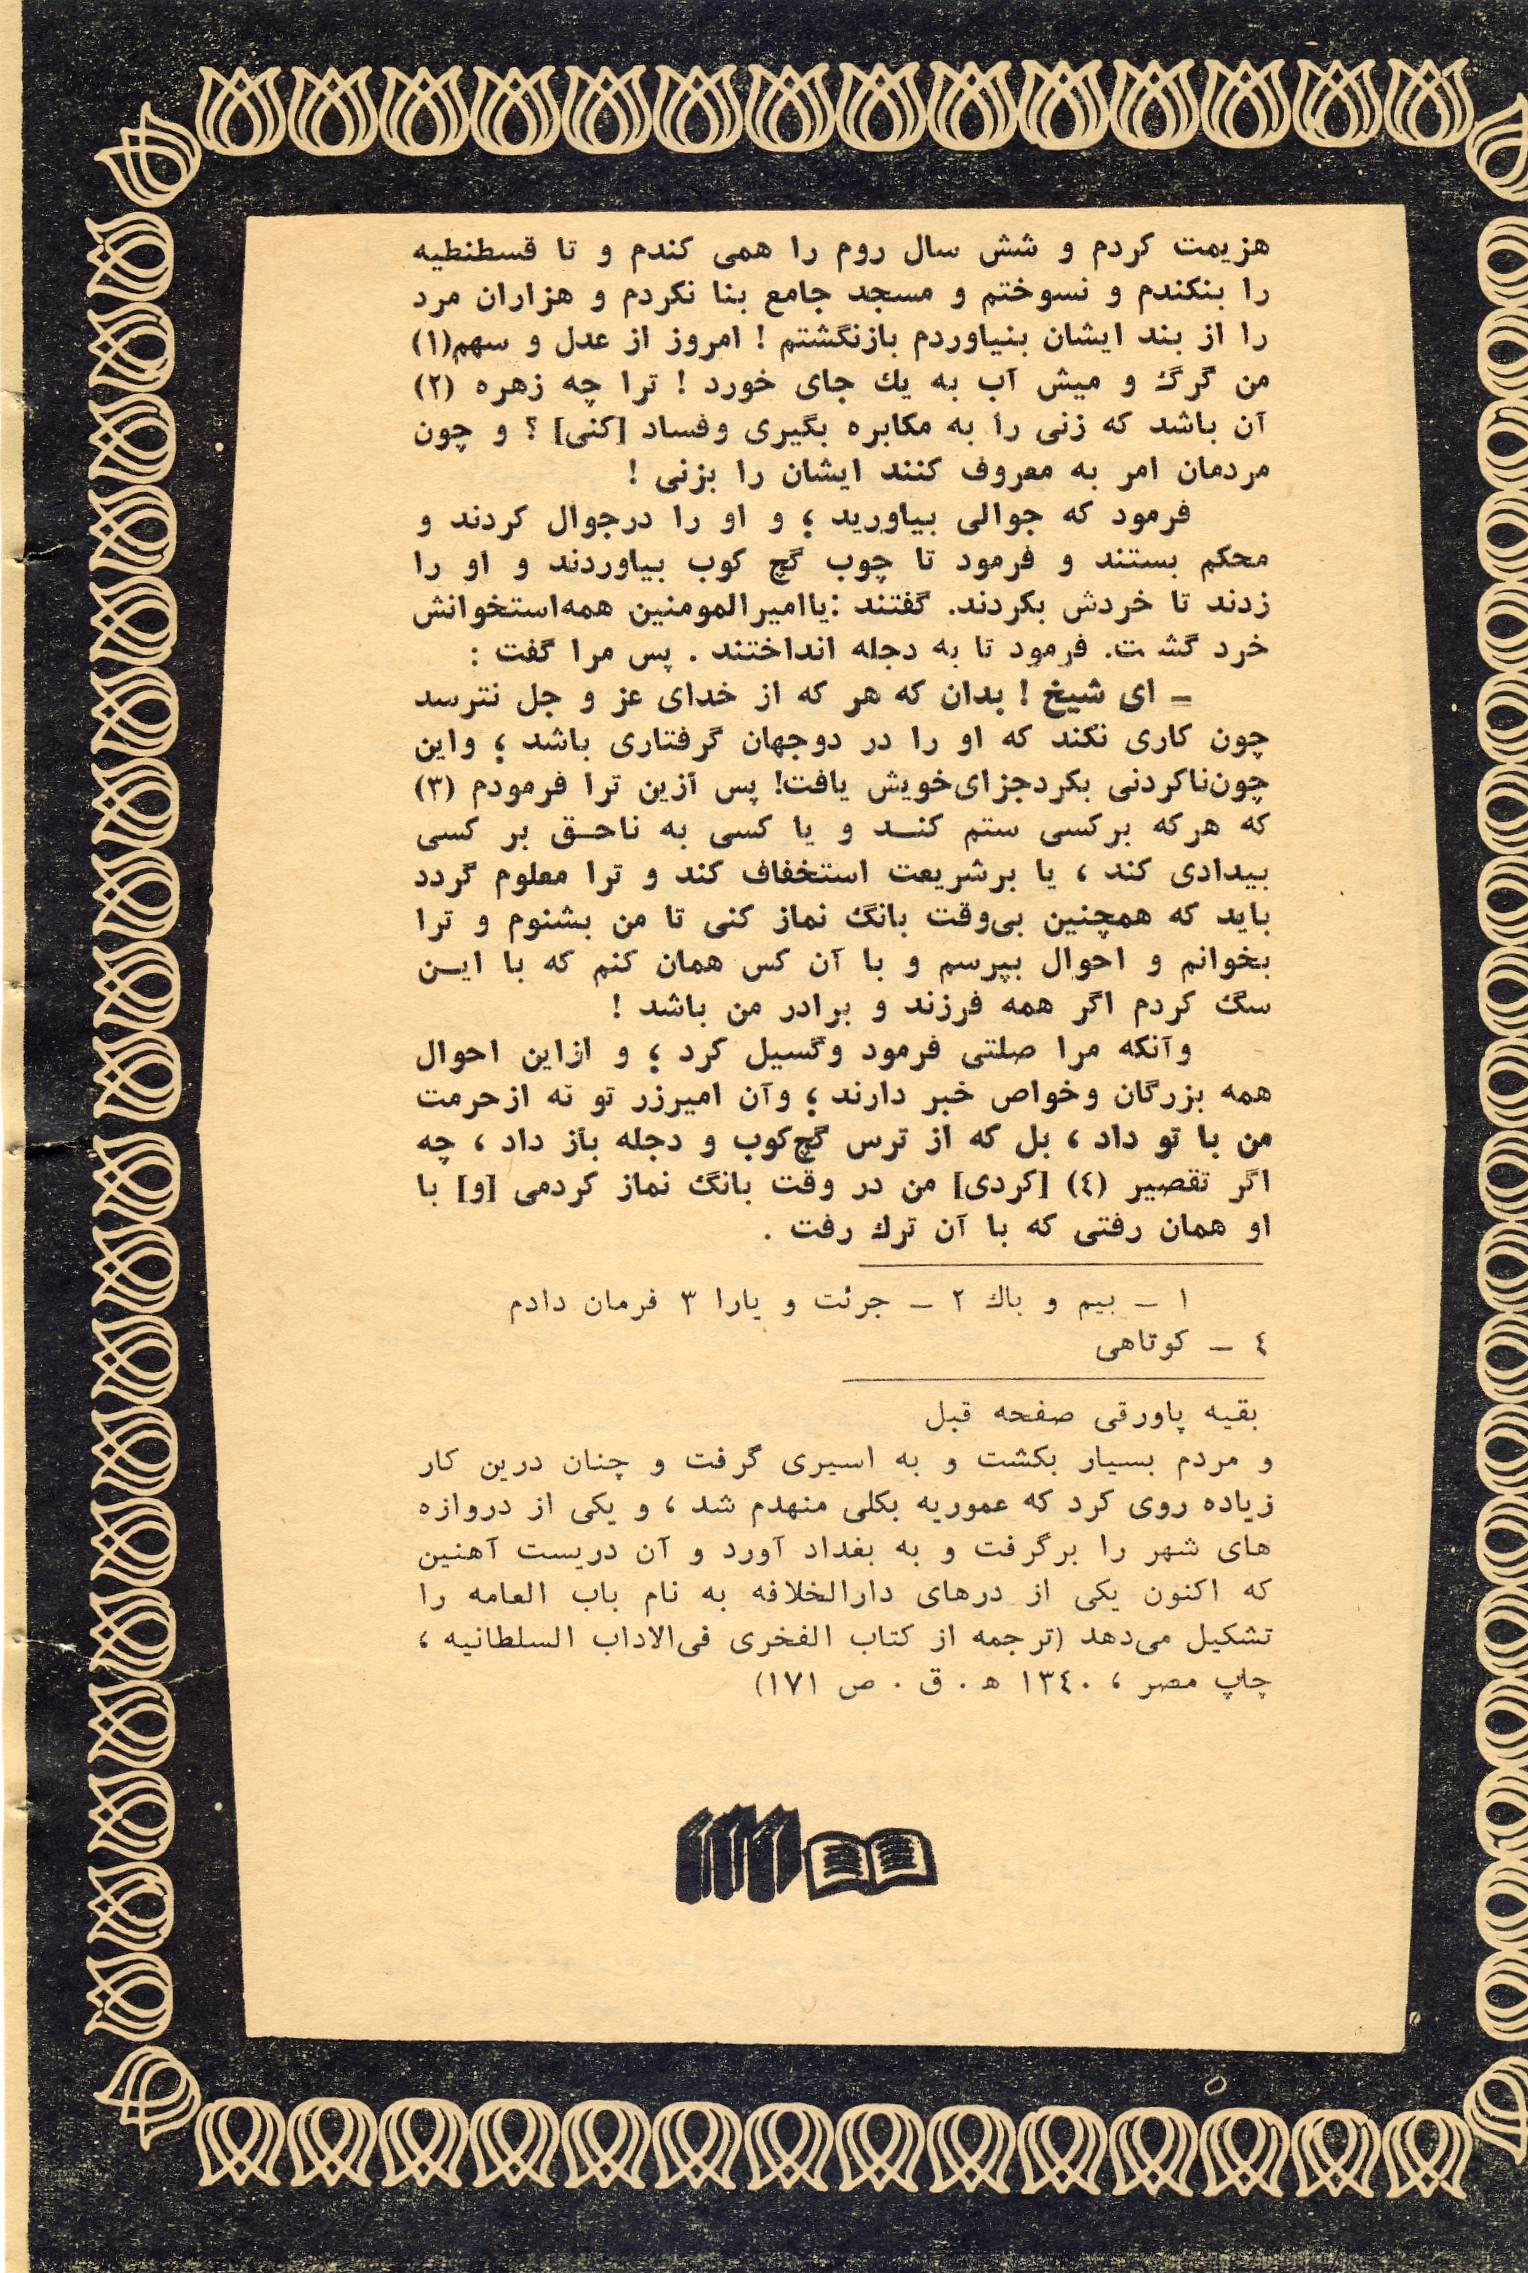 هزیمت کردم و شش سال روم را همی کندم و تا قسطنطیه
را بنکندم و نسوختم و مسجد جامع بنا نکردم و هزاران مرد
را از بند ایشان بنیاوردم بازنگشتم ! امروز از عدل و سهم(۱)
من گرگ و میش آب به یك جای خورد ! ترا چه زهره (۲)
آن باشد که زنی را به مکابره بگیری وفساد [کنی] ؟ و چون
مردمان امر به معروف کنند ایشان را بزنی !
فرمود که جوالی بیاورید ؛ و او را درجوال کردند و
محکم بستند و فرمود تا چوب گچ کوب بیاوردند و او را
زدند تا خردش بکردند. گفتند :یاامیرالمومنین همه‌استخوانش
خرد گشت. فرمود تا به دجله انداختند . پس مرا گفت :
ـ ای شیخ ! بدان که هر که از خدای عز و جل نترسد
چون کاری نکند که او را در دوجهان گرفتاری باشد ؛ واین
چون‌ناکردنی بکردجزای‌خویش یافت! پس ازین ترا فرمودم (۳)
که هرکه برکسی ستم کنـد و یا کسی به ناحـق بر کسی
بیدادی کند ، یا برشریعت استخفاف کند و ترا معلوم گردد
باید که همچنین بی‌وقت بانگ نماز کنی تا من بشنوم و ترا
بخوانم و احوال بپرسم و با آن کس همان کنم که با ایـن
سگ کردم اگر همه فرزند و برادر من باشد !
وآنکه مرا صلتی فرمود وگسیل کرد ؛ و ازاین احوال
همه بزرگان وخواص خبر دارند ؛ وآن امیرزر تو نه ازحرمت
من با تو داد ، بل که از ترس گچ‌کوب و دجله باز داد ، چه
اگر تقصیر (٤) [کردی] من در وقت بانگ نماز کردمی [و] با
او همان رفتی که با آن ترك رفت .
۱ ـ بیم و باك ۲ ـ جرئت و یارا ۳ فرمان دادم
٤ ـ کوتاهی
بقیه پاورقی صفحه قبل
و مردم بسیار بکشت و به اسیری گرفت و چنان درین کار
زیاده روی کرد که عموریه بکلی منهدم شد ، و یکی از دروازه
های شهر را برگرفت و به بغداد آورد و آن دریست آهنین
که اکنون یکی از درهای دارالخلافه به نام باب العامه را
تشکیل می‌دهد (ترجمه از کتاب الفخری فی‌الاداب السلطانیه ،
چاپ مصر ، ۱۳٤۰ ه . ق . ص ۱۷۱)